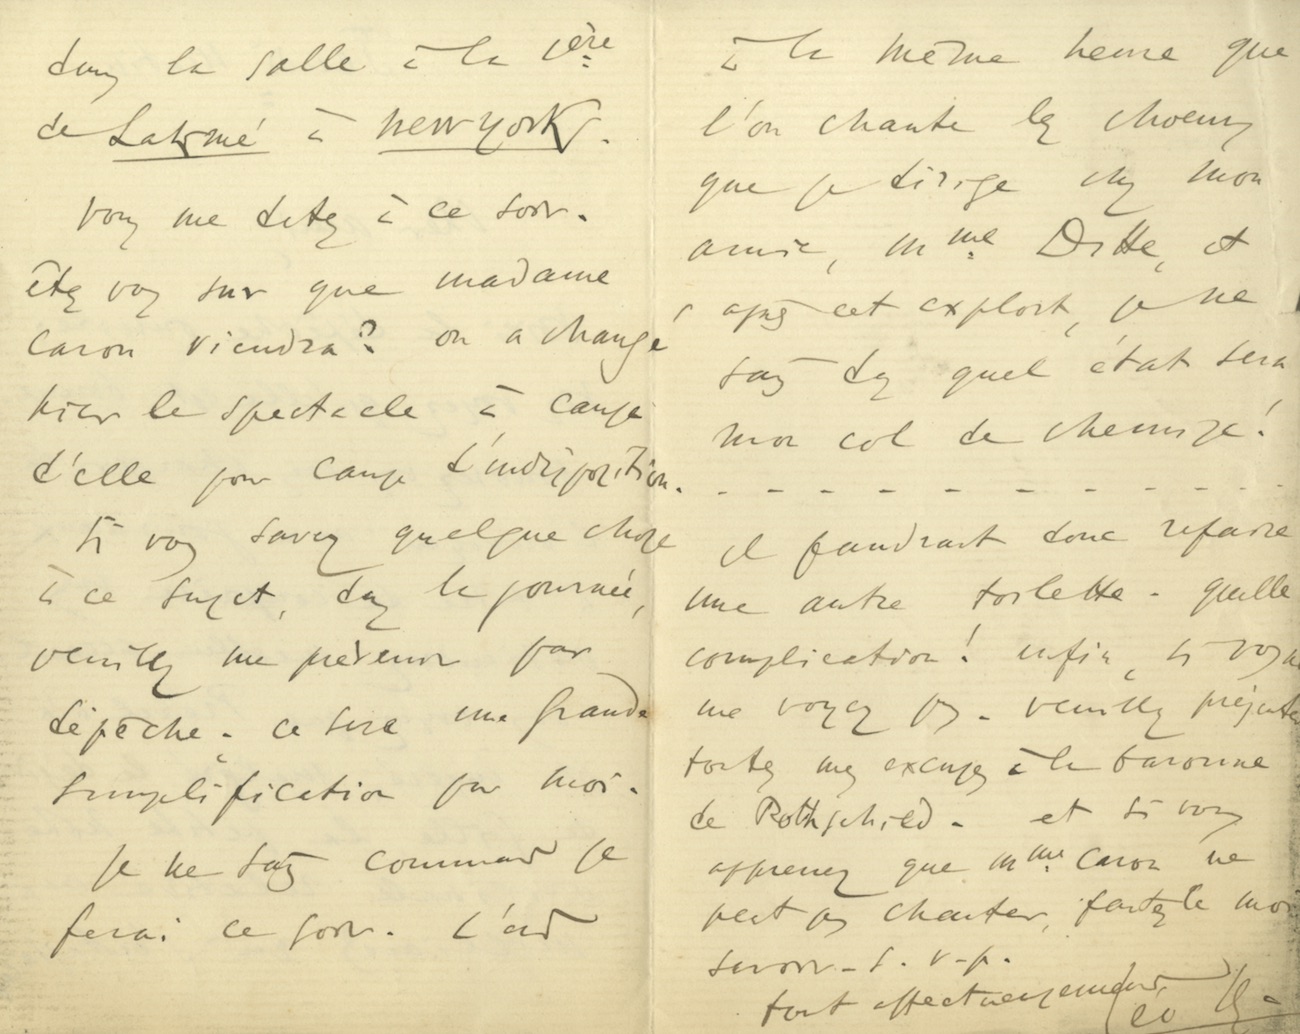 dans la salle à la 1ère
de Lakmé à New York.
Vous me dites à ce soir.
êtes vous sur que madame
Caron viendra? on a changé
hier le spectacle à cause
d'elle pour cause d'indisposition.
Si vous savez quelque chose
à ce sujet, dans la journée,
veuillez me prévenir par
dépêche. ce sera une grande
simplification pour moi.
Je ne sais comment je
ferai ce soir. C'est
à la même heure que
l'on chante les choeurs
que je dirige chez mon
amie, Mme Ditte, et
après cet exploit, je ne
sais dans quel état sera
mon col de chemise!
il faudrait donc refaire
une autre toilette. quelle
complication! enfin, si vous ne
me voyez pas. veuillez présenter
toutes mes excuses à la baronne
de Rothschild. et si vous
apprenez que Mme Caron ne
peut pas chanter, faites le moi
savoir. s. v. p.
tout affectueusement
Léo